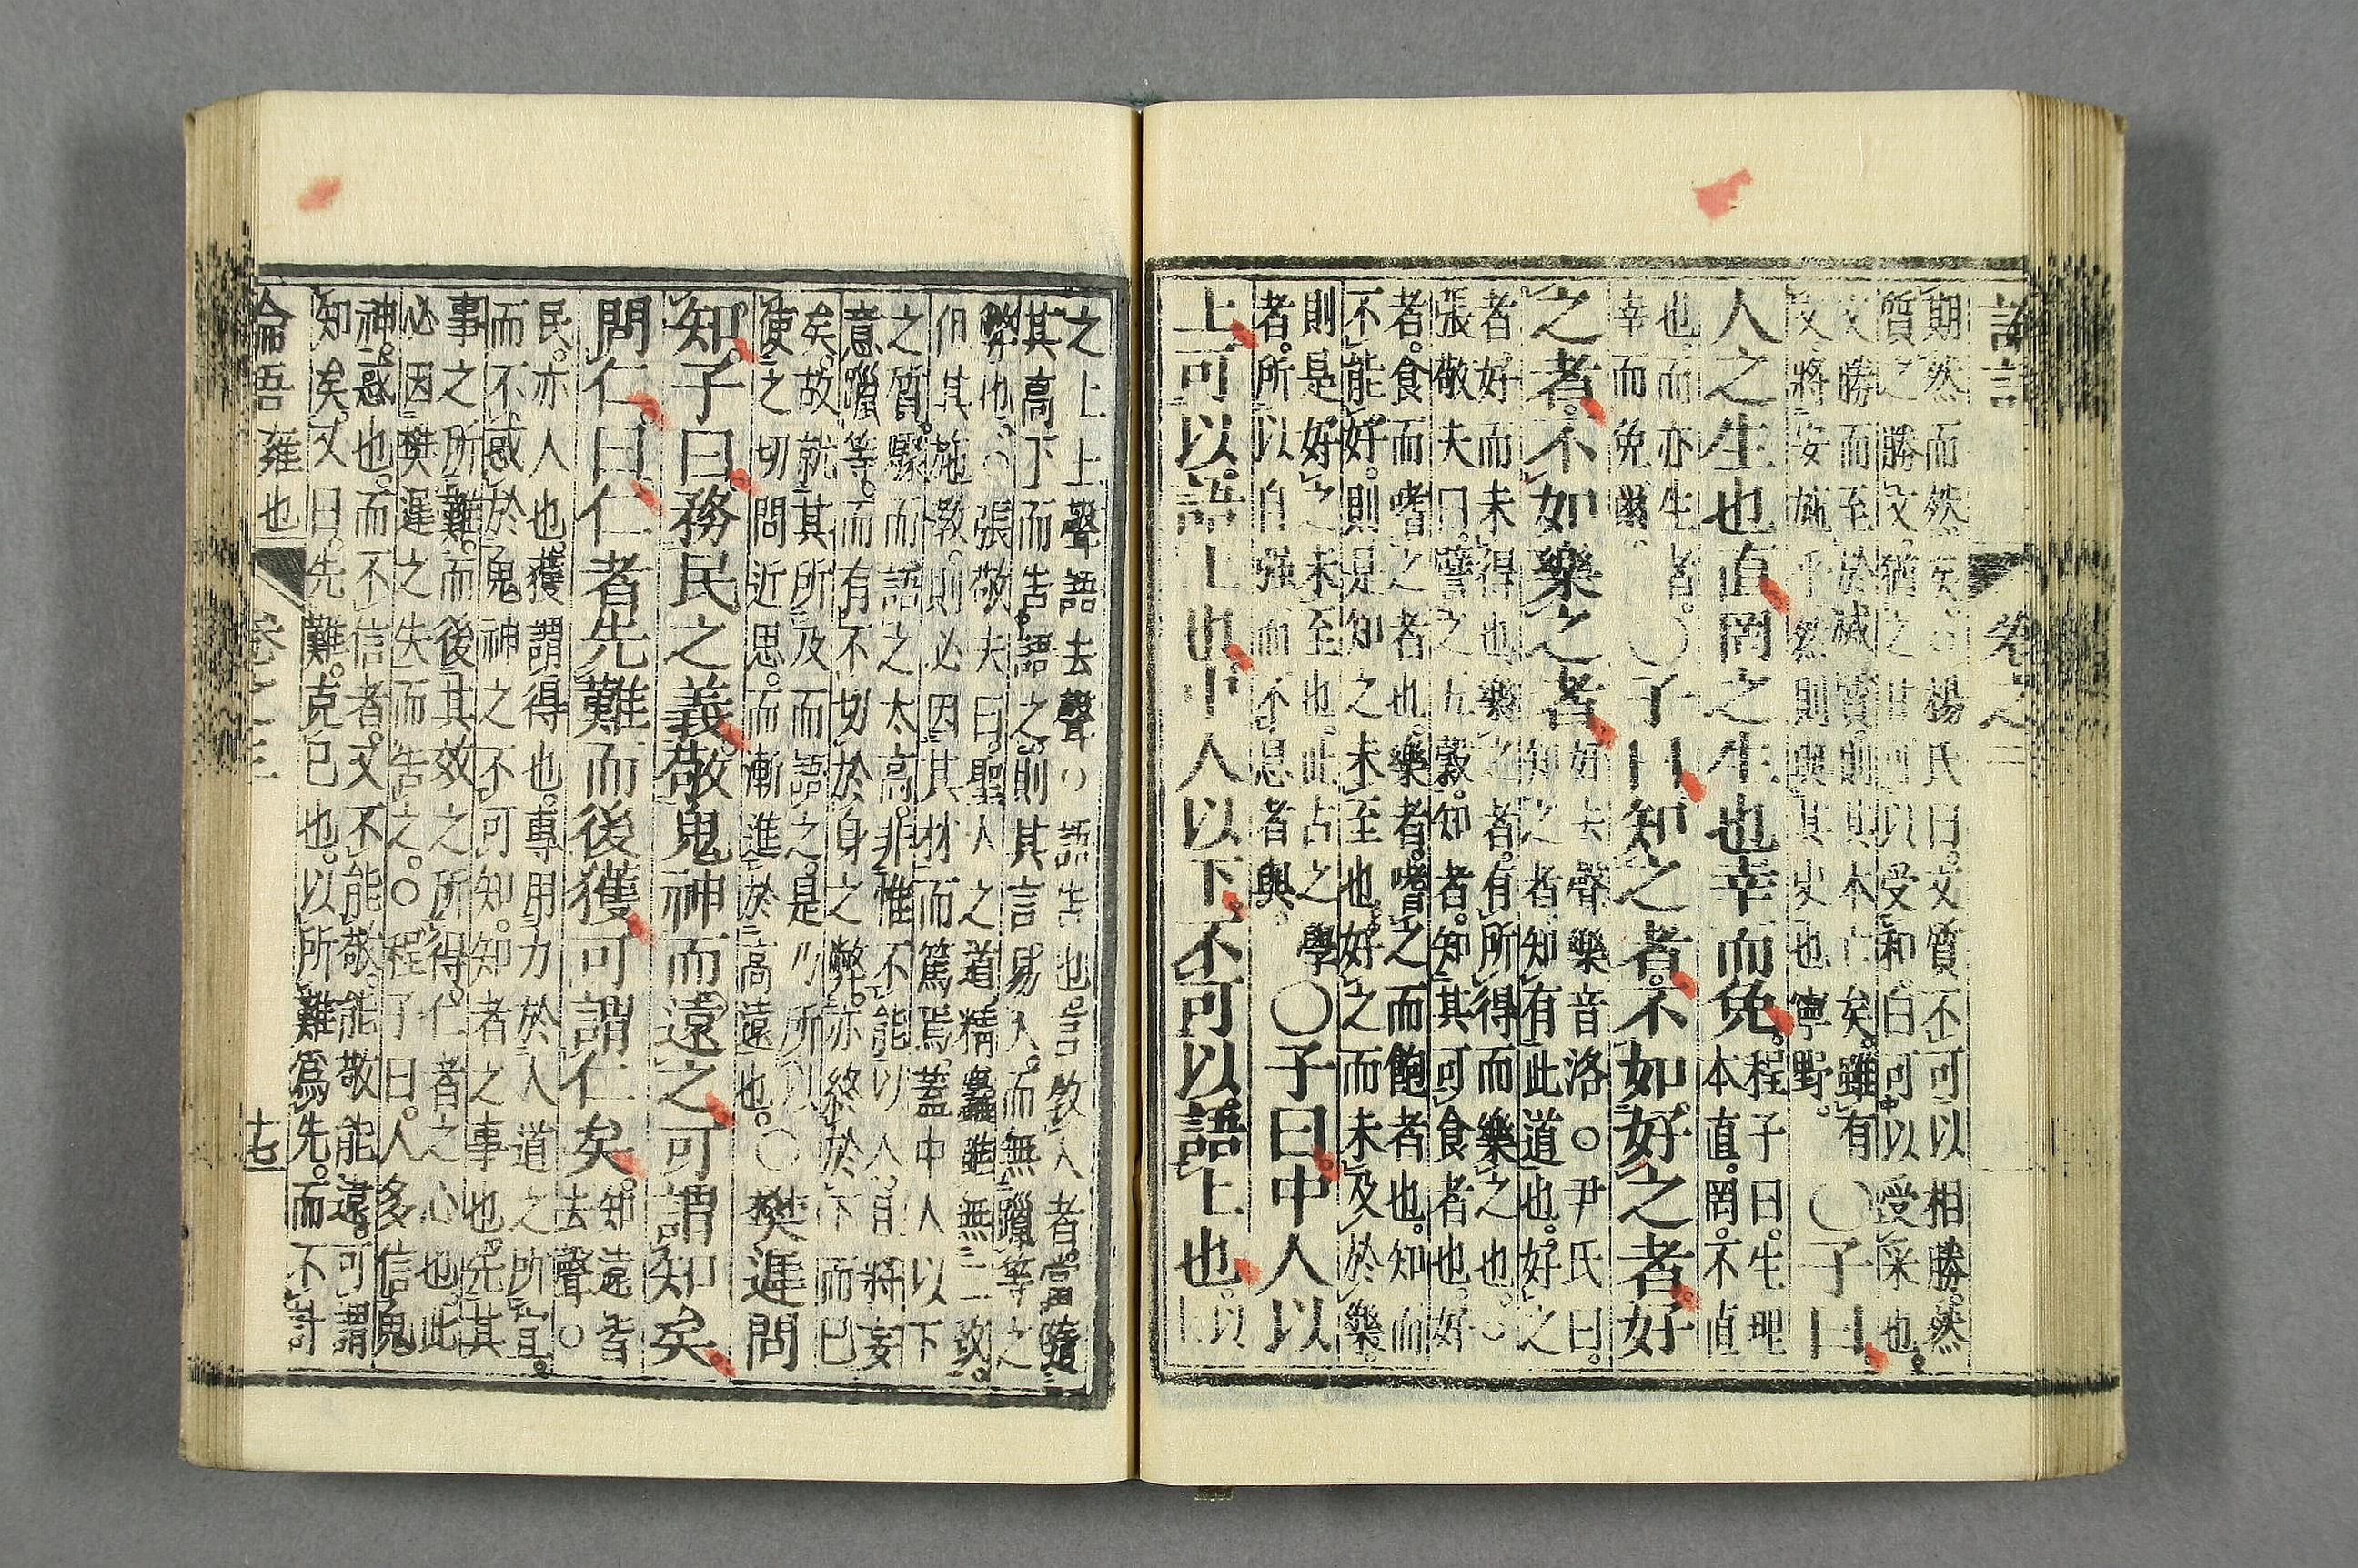 期然而然矣○楊氏曰文質不可以相勝然
質之勝文猶之甘可以受和白可以受采也
文勝而至於滅質則其本亡矣雖有
文將安施乎然則與其史也寧野
○子曰
人之生也直罔之生也幸而免
程子曰生理
本直罔不直
也而亦生者
幸而免爾
○子曰知之者不如好之者好
之者不如樂之者
好去聲樂音洛○尹氏曰
知之者知有此道也好之
者好而未得也樂之者有所得而樂之也○
張敬夫曰譬之五穀知者知其可食者也好
者食而嗜之者也樂者嗜之而飽者也知而
不能好則是知之未至也好之而未及於樂
則是好之未至也此古之學
者所以自強而不息者與
○子曰中人以
上可以語上也中人以下不可以語上也
以
上
之上上聲語去聲○語告也言教人者當隨
其高下而告語之則其言易入而無躐等之
弊也○張敬夫曰聖人之道精粗雖無二致
但其施教則必因其材而篤焉蓋中人以下
之質驟而語之太高非惟不能以入且將妄
意躐等而有不切於身之弊亦終於下而已
矣故就其所及而語之是乃所以
使之切問近思而漸進於高遠也
○樊遲問
知子曰務民之義敬鬼神而遠之可謂知矣
問仁曰仁者先難而後獲可謂仁矣
知遠皆
去聲○
民亦人也獲謂得也專用力於人道之所宜
而不惑於鬼神之不可知知者之事也先其
事之所難而後其效之所得仁者之心也此
必因樊遲之失而告之○程子曰人多信鬼
神惑也而不信者又不能敬能敬能遠可謂
知矣又曰先難克已也以所難爲先而不計
論吾雍也 卷之三 十七